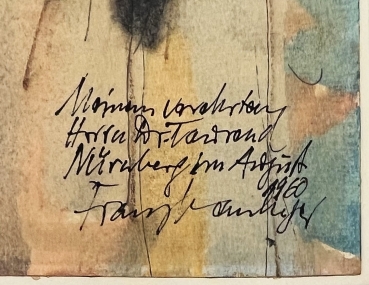 Meinem verehrten
Herrn Dr.
Nürnberg im August
1960
Franz